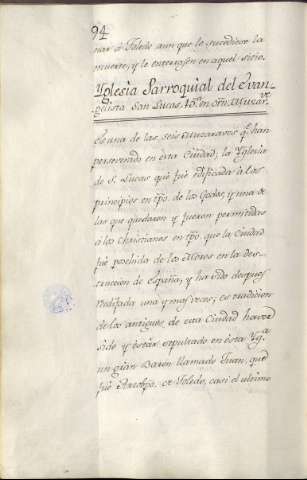 94
nar à Toledo aun que le sucediese la
muerte, y le enterasen en aquel sitio.
Yglesia Parroquial del Evan-
gelista San Lucas, 15ª en ôrn Muzar.ve
Es una de las seis Muzaraves q.e han
perseverado en esta Ciudad, la Yglesia
de S. Lucas que fué edificada à los
principios en tpō. de los Godos, y una de
las que quedaron y fueron permitidas
à los Christianos en tpō. que la Ciudad
fué posehida de los Moros en la des-
truccion de España, y ha sido despues
redificada una y mas veces; es tradicion
de los antiguos de esta Ciudad haver
sido y estar sepultado en esta Yg.ª
un gran Baron llamado Juan, que
fué Arzobpo. de Toledo, casi el ultimo